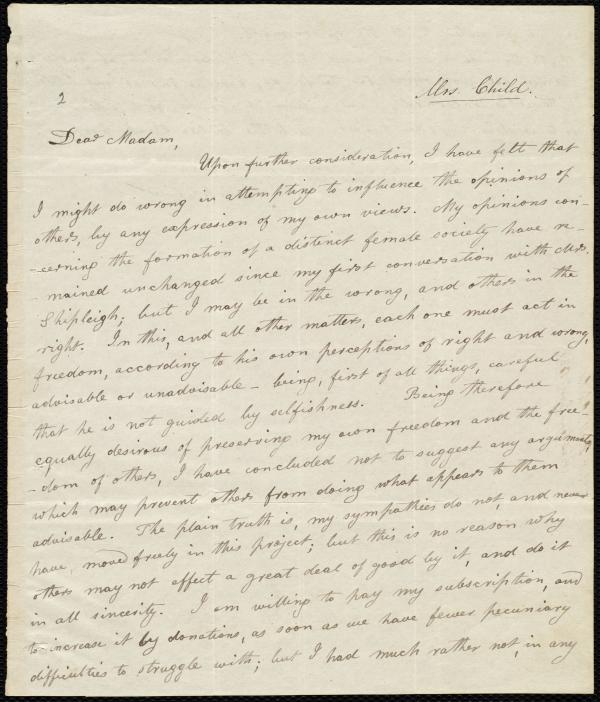 2
Mrs. Child.
Dear Madam,
Upon further consideration, I have felt that
I might do wrong in attempting to influence the opinions of
others, by any expression of my own views. My opinions con-
-cerning the formation of a distinct female society have re-
-mained unchanged since my first conversation with Mrs.
Shipleigh; but I may be in the wrong, and others in the
right. In this, and all other matters, each one must act in
freedom, according to his own perceptions of right and wrong,
advisable or unadvisable – being, first of all things, careful
that he is not guided by selfishness. Being therefore
equally desirous of preserving my own freedom and the free-
-dom of others, I have concluded not to suggest any arguments,
which may prevent others from doing what appears to them
advisable. The plain truth is, my sympathies do not, and never
have, moved freely in this project; but this is no reason why
others may not effect a great deal of good by it, and do it
in all sincerity. I am willing to pay my subscription, and
to increase it by donations, as soon as we have fewer pecuniary
difficulties to struggle with; but I had much rather not, in any